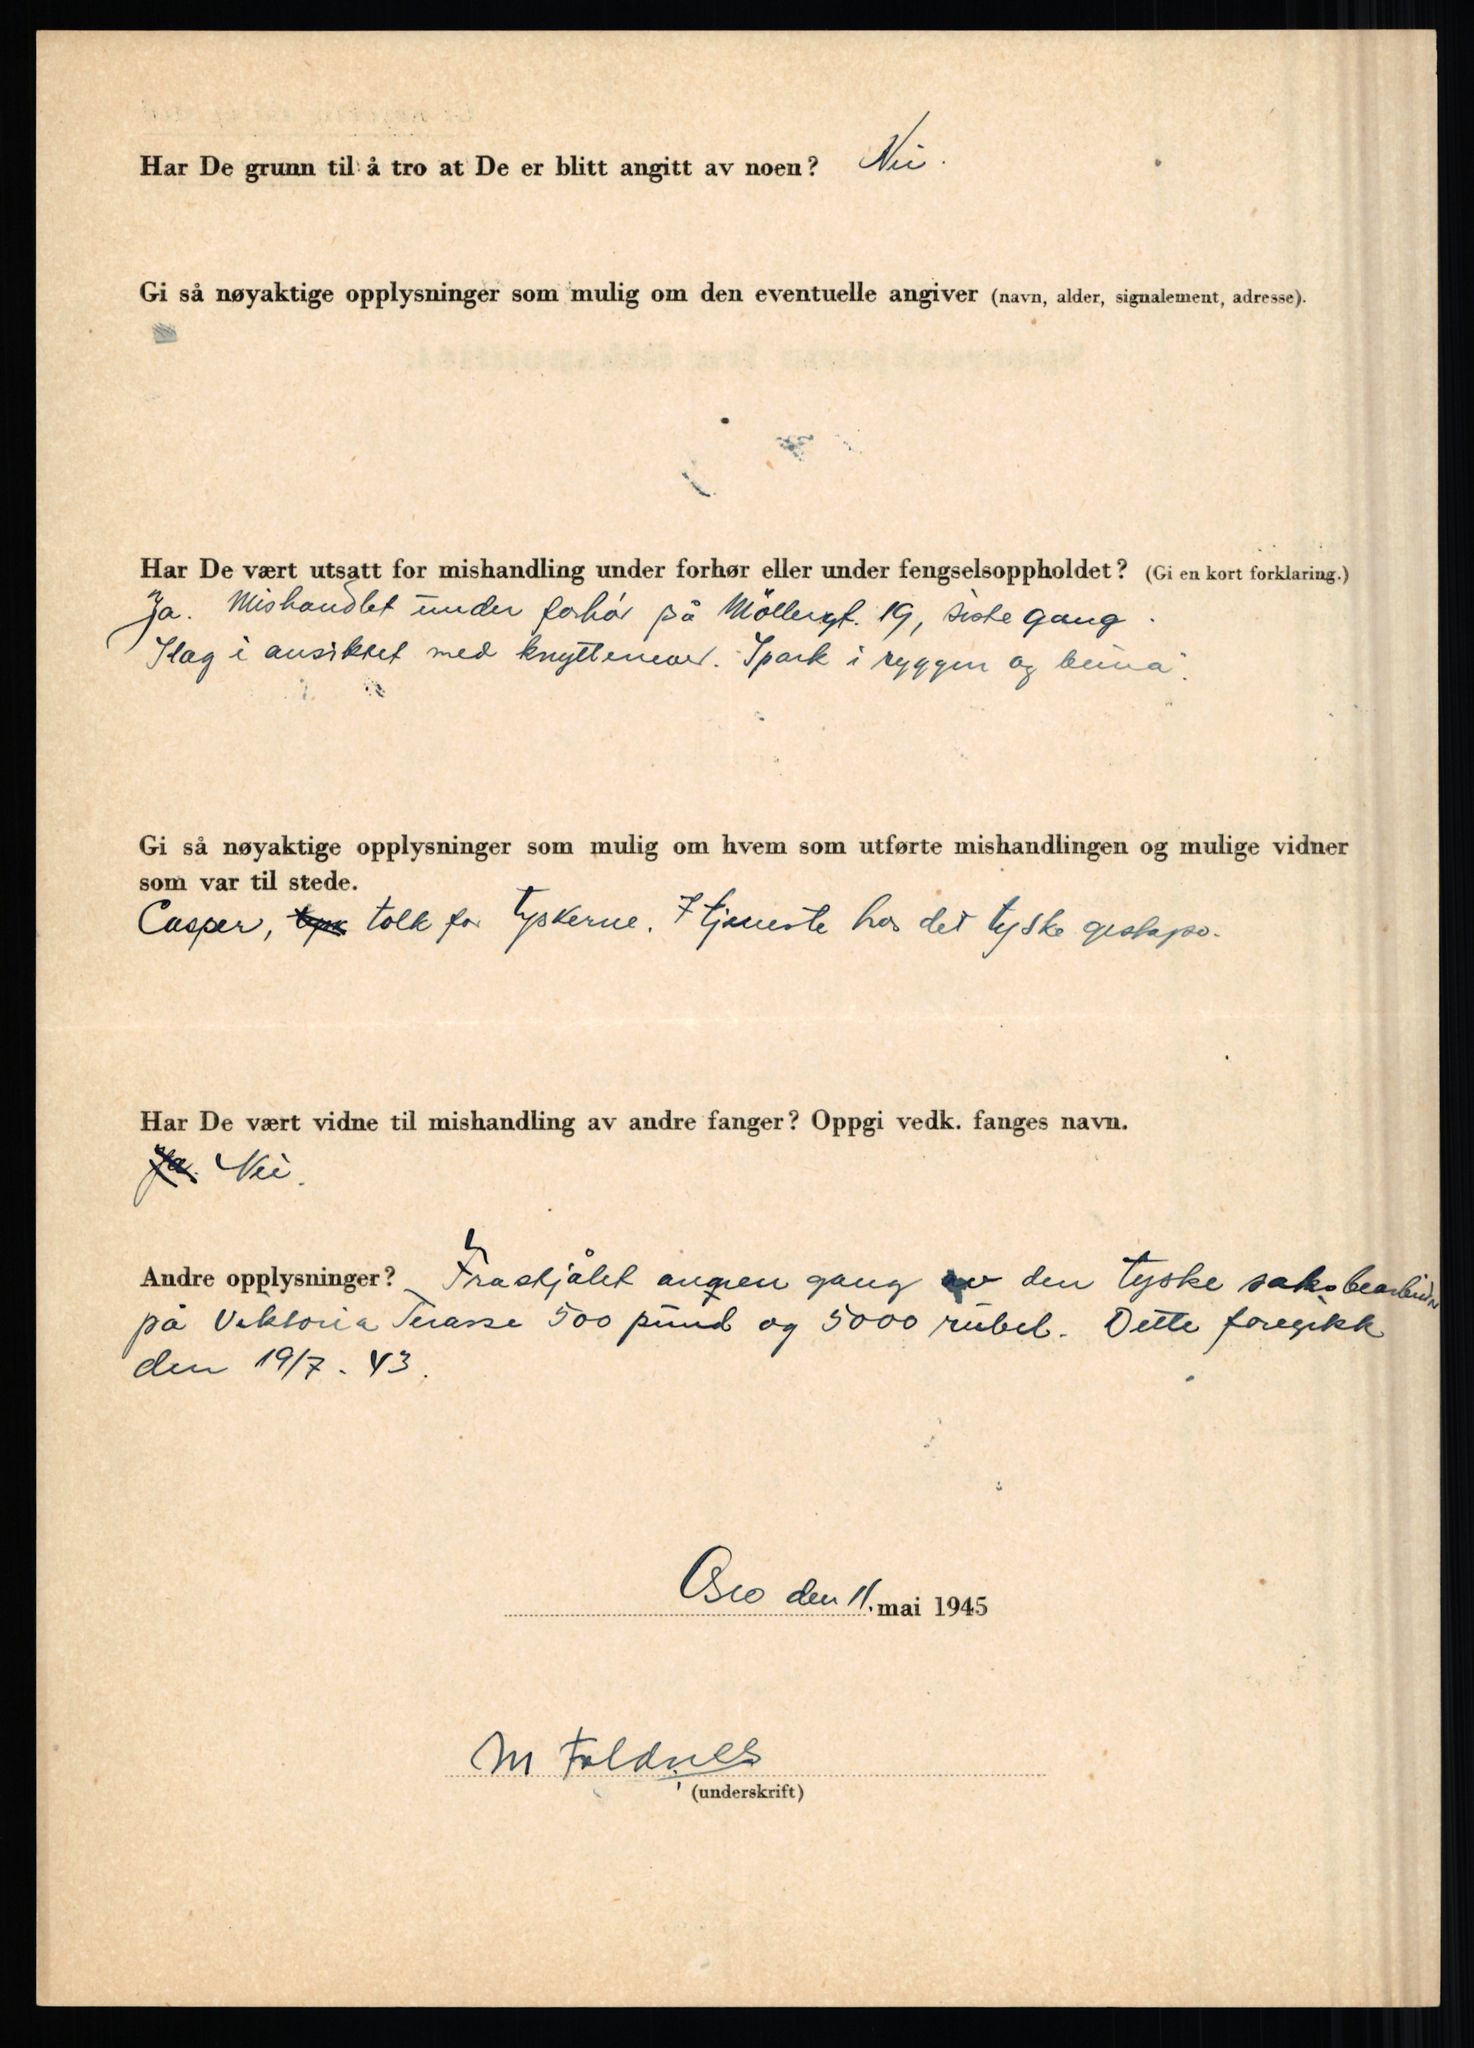 Har De grunn til å tro at De er blitt angitt av noen? Nei.
Gi så nøyaktige opplysninger som mulig om den eventuelle angiver (navn, alder, signalement, adresse).
Har De vært utsatt for mishandling under forhør eller under fengselsoppholdet? (Gi en kort forklaring.)
Ja. Mishandlet under forhör på Möllergt. 19, siste gang.
Slag i ansiktet med knyttenever. Spark i ryggen og beina.
Gi så nøyaktige opplysninger som mulig om hvem som utførte mishandlingen og mulige vidner
som var til stede.
Casper, tolk for tyskerne. I tjeneste hos det tyske gestapo.
Har De vært vidne til mishandling av andre fanger? Oppgi vedk. fanges navn.
Ja. Nei.
Andre opplysninger? Frastjålet annen gang av den tyske saksbearbeider
på Viktoria Terasse 500 pund og 5000 rubel. Dette foregikk
den 19/7 - 43.
Oslo den 11. mai 1945
M Foldnes
(underskrift)